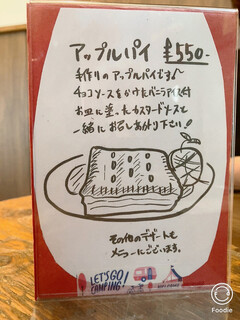 アップルパイ ¥550-
手作りのアップルパイです
チョコソースをかけたバニラアイス付
お皿に塗ったカスタードソースと
一緒にお召しあがり下さい!
その他のデザートも
メニューにございます。
LET'S GO
CAMPING!
Foodie